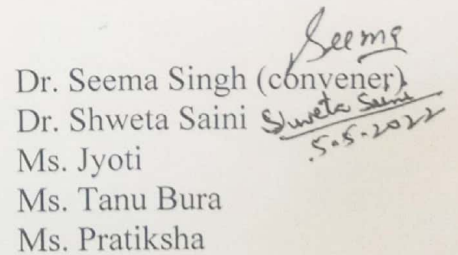 Seema
Dr. Seema Singh (convener)
Dr. Shweta Saini Shweta Saini
5.5.2022
Ms. Jyoti
Ms. Tanu Bura
Ms. Pratiksha